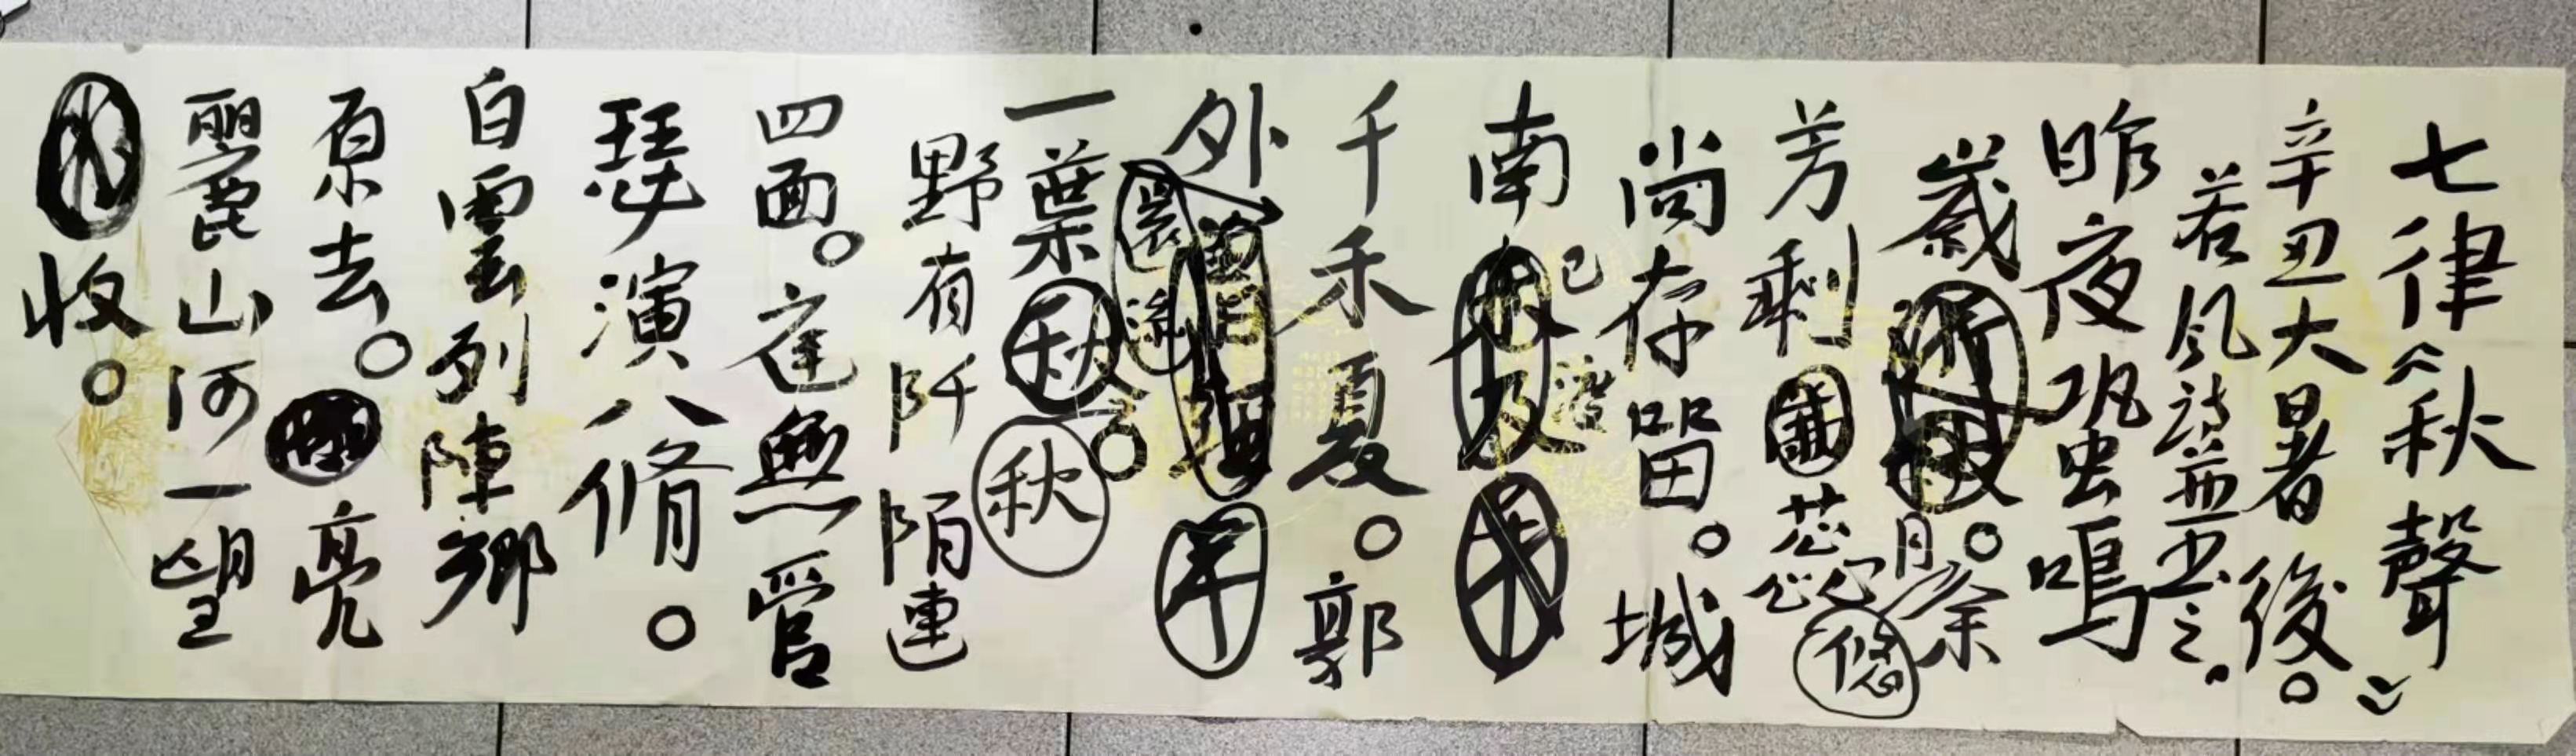 七律《秋聲》
辛丑大暑後。
若風詩並書之。
昨夜巩虫鳴
歲月。余
芳剩芯悠
尚存留。城
南已渡
千禾夏。郭
外
一葉秋。
野有阡陌連
四面。庭無管
瑟演八脩。
白雲列陣鄉
原去。亮
麗山河一望
收。